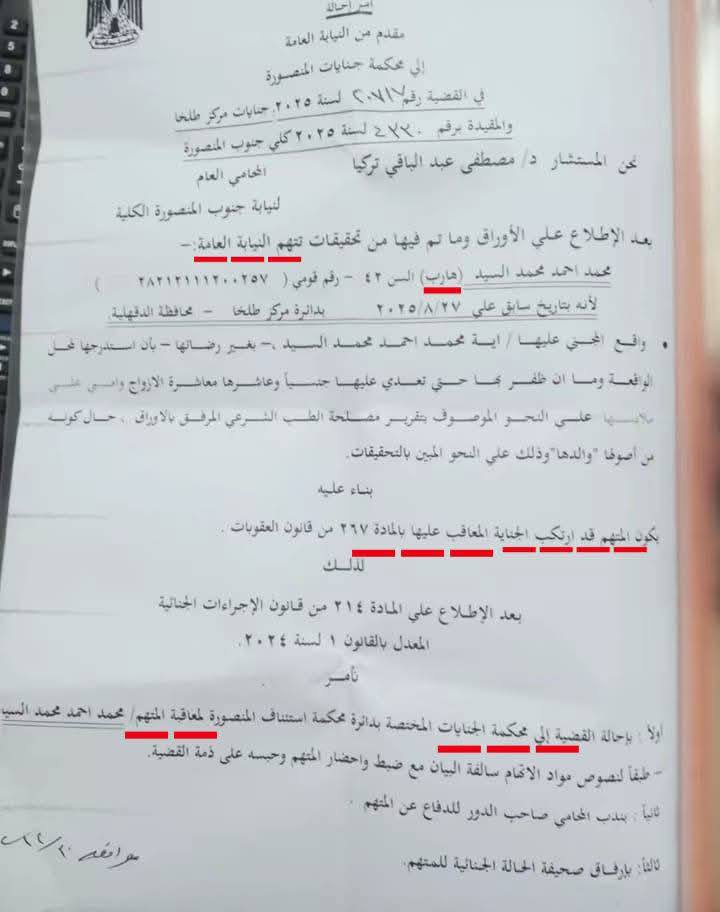 أمر إحالة
مقدم من النيابة العامة
إلي محكمة جنايات المنصورة
في القضية رقم ٢٠٧١٧ لسنة ٢٠٢٥ جنايات مركز طلخا
والمقيدة برقم ٤٣٣٠ لسنة ٢٠٢٥ كلي جنوب المنصورة
نحن المستشار د/ مصطفى عبد الباقي تركيا
المحامي العام
لنيابة جنوب المنصورة الكلية
بعد الإطلاع علي الأوراق وما تم فيها من تحقيقات تتهم النيابة العامة:-
محمد احمد محمد السيد (هارب) السن ٤٢ - رقم قومي ( ٢٨٢١٢١١١٢٠٠٢٥٧ )
لأنه بتاريخ سابق علي ٢٠٢٥/٨/٢٧ بدائرة مركز طلخا - محافظة الدقهلية.
• واقع المجني عليها / اية محمد احمد محمد السيد ،- بغير رضائها – بأن استدرجها لمحل
الواقعة وما ان ظفر بها حتي تعدي عليها جنسياً وعاشرها معاشرة الازواج وامني علي
ملابسها علي النحو الموصوف بتقرير مصلحة الطب الشرعي المرفق بالاوراق ، حال كونه
من أصولها "والدها" وذلك علي النحو المبين بالتحقيقات.
بناء عليه
يكون المتهم قد ارتكب الجناية المعاقب عليها بالمادة ٢٦٧ من قانون العقوبات .
لذلك
بعد الإطلاع علي المادة ٢١٤ من قانون الإجراءات الجنائية
المعدل بالقانون ١ لسنة ٢٠٢٤.
نأمر
أولاً : بإحالة القضية إلي محكمة الجنايات المختصة بدائرة محكمة استئناف المنصورة لمعاقبة المتهم/ محمد احمد محمد السيد
- طبقاً لنصوص مواد الاتهام سالفة البيان مع ضبط واحضار المتهم وحبسه على ذمة القضية.
ثانياً : بندب المحامي صاحب الدور للدفاع عن المتهم .
ثالثاً: بإرفاق صحيفة الحالة الجنائية للمتهم.